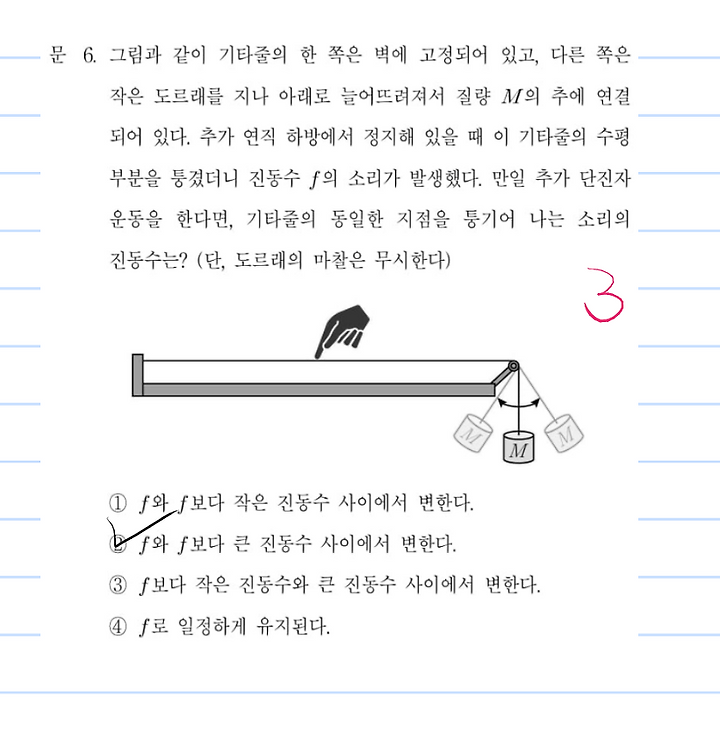 문 6. 그림과 같이 기타줄의 한 쪽은 벽에 고정되어 있고, 다른 쪽은
작은 도르래를 지나 아래로 늘어뜨려져서 질량 M의 추에 연결
되어 있다. 추가 연직 하방에서 정지해 있을 때 이 기타줄의 수평
부분을 퉁겼더니 진동수 f의 소리가 발생했다. 만일 추가 단진자
운동을 한다면, 기타줄의 동일한 지점을 퉁기어 나는 소리의
진동수는? (단, 도르래의 마찰은 무시한다)
3
M M M
① f와 f보다 작은 진동수 사이에서 변한다.
② f와 f보다 큰 진동수 사이에서 변한다.
③ f보다 작은 진동수와 큰 진동수 사이에서 변한다.
④ f로 일정하게 유지된다.